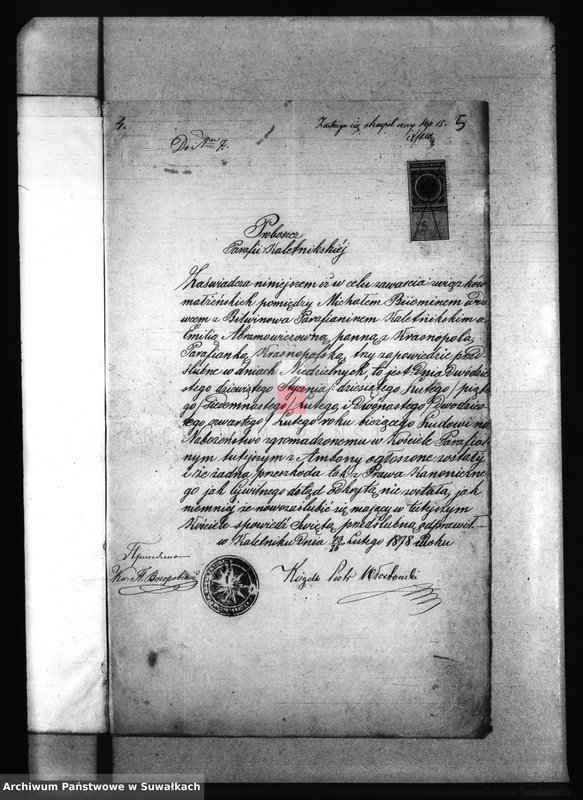 4.
Zastępuje się stempel ceny kop 15. 5
Do Nru 4.
Proboszcz
Parafii Kaletnikskiéj
Zaświadcza niniejszem iż w celu zawarcia związków
małżeńskich pomiędzy Michałem wdo
wcem z Bilwinowa Parafianinem Kaletnikskim a
Emilią Abramowiczowną panną z Krasnopola,
Parafianką Krasnopolską, trzy zapowiedzie przed
ślubne w dniach Niedzielnych, to jest dnia Dwódzie
stego dziewiątego Stycznia / dziesiątego Lutego / piąte
go / Siedemnastego / Lutego i Dwónastego / Dwudzies
tego czwartego / Lutego roku bieżącego ludowi na
Nabożeństwo zgromadzonemu w Kościele Parafial
nym tutejszym z Ambony ogłoszone zostały
i że żadna przeszkoda tak z Prawa Kanoniczne
go jak Cywilnego dotąd odkrytą nie została, jak
niemniej że nowozaślubić się mający w tutejszym
Kościele spowiedź Świętą przedślubną odprawił
w Kaletniku Dnia 12/24 Lutego 1878 Roku
Ksiądz Piotr
Archiwum Państwowe w Suwałkach